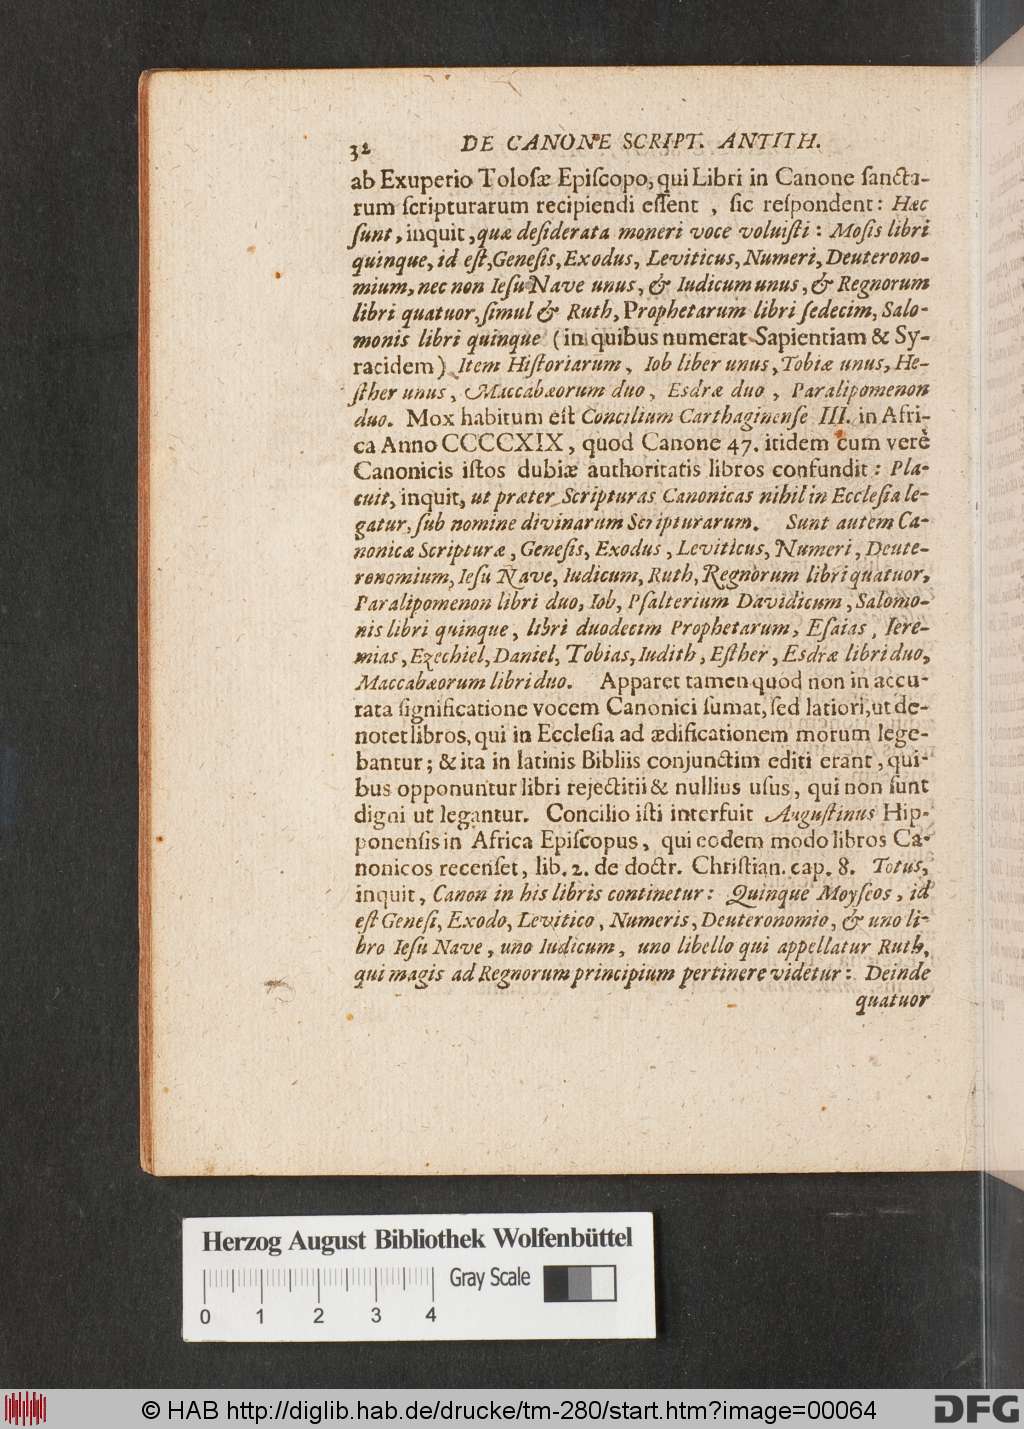 32 DE CANONE SCRIPT. ANTITH.
ab Exuperio Tolosæ Episcopo, qui Libri in Canone sancta-
rum scripturarum recipiendi essent , sic respondent: Hæc
sunt, inquit, quæ desiderata moneri voce voluisti: Mosis libri
quinque, id est, Genesis, Exodus, Leviticus, Numeri, Deuterono-
mium, nec non Iesu Nave unus, & Iudicum unus, & Regnorum
libri quatuor, simul & Ruth, Prophetarum libri sedecim, Salo-
monis libri quinque (in quibus numerat Sapientiam & Sy-
racidem) Item Historiarum, Iob liber unus, Tobiæ unus, He-
sther unus, Maccabæorum duo, Esdræ duo, Paralipomenon
duo. Mox habitum est Concilium Carthaginense III. in Afri-
ca Anno CCCCXIX, quod Canone 47. itidem cum verè
Canonicis istos dubiæ authoritatis libros confundit: Pla-
cuit, inquit, ut præter Scripturas Canonicas nihil in Ecclesia le-
gatur, sub nomine divinarum Scripturarum. Sunt autem Ca-
nonicæ Scripturæ, Genesis, Exodus, Leviticus, Numeri, Deute-
ronomium, Iesu Nave, Iudicum, Ruth, Regnorum libri quatuor,
Paralipomenon libri duo, Iob, Psalterium Davidicum, Salomo-
nis libri quinque, libri duodecim Prophetarum, Esaias, Iere-
mias, Ezechiel, Daniel, Tobias, Iudith, Esther, Esdræ libri duo,
Maccabæorum libri duo. Apparet tamen quod non in accu-
rata significatione vocem Canonici sumat, sed latiori, ut de-
notet libros, qui in Ecclesia ad ædificationem morum lege-
bantur; & ita in latinis Bibliis conjunctim editi erant, qui-
bus opponuntur libri rejectitii & nullius usus, qui non sunt
digni ut legantur. Concilio isti interfuit Augustinus Hip-
ponensis in Africa Episcopus, qui eodem modo libros Ca-
nonicos recenset, lib. 2. de doctr. Christian. cap. 8. Totus,
inquit, Canon in his libris continetur: Quinque Moyseos, id
est Genesi, Exodo, Levitico, Numeris, Deuteronomio, & uno li-
bro Iesu Nave, uno Iudicum, uno libello qui appellatur Ruth,
qui magis ad Regnorum principium pertinere videtur: Deinde
quatuor
Herzog August Bibliothek Wolfenbüttel
Gray Scale
0 1 2 3 4
© HAB http://diglib.hab.de/drucke/tm-280/start.htm?image=00064
DFG